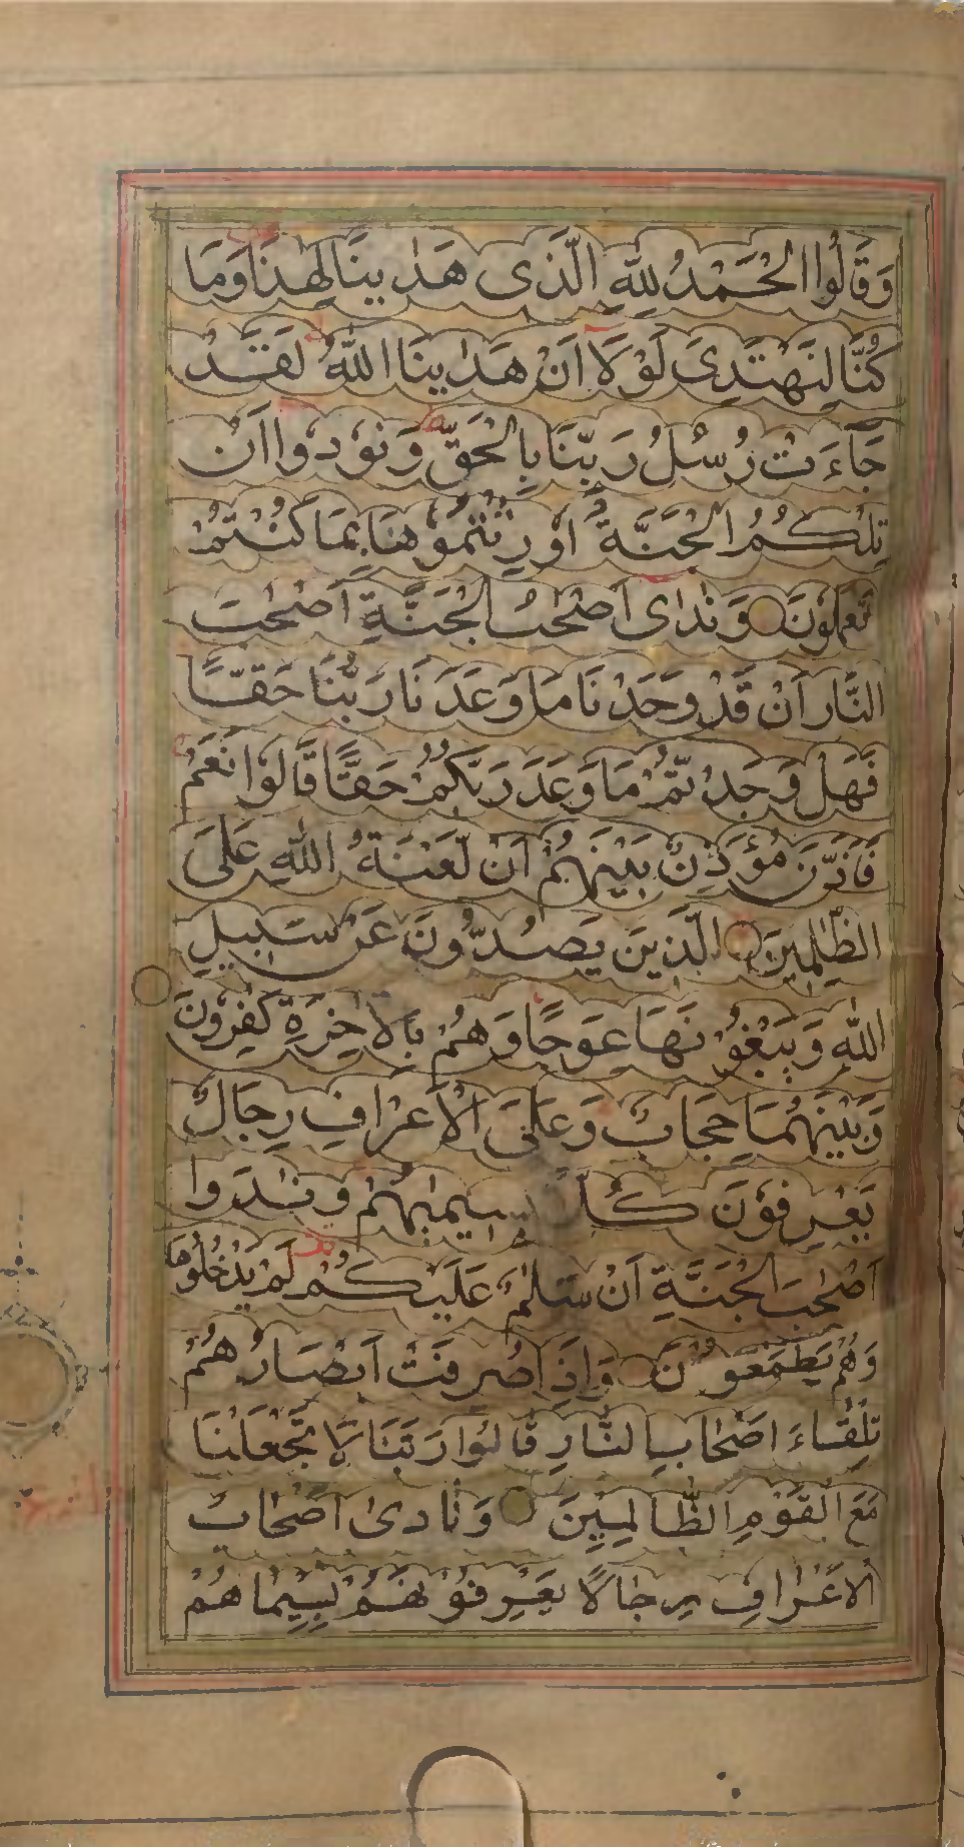 وَقَالُوا الْحَمْدُ لِلّٰهِ الَّذَى هَدٰينَا لِهٰذَا وَمَا
كُنَّا لِنَهْتَدِىَ لَوْلَا اَنْ هَدٰينَا اللّٰهُ لَقَدْ
جَآءَتْ رُسُلُ رَبِّنَا بِالْحَقِّ وَنُودُوا اَنْ
تِلْكُمُ الْجَنَّةُ اُورِثْتُمُوهَا بِمَا كُنْتُمْ
تَعْمَلُونَ وَنَادٰى اَصْحٰبُ الْجَنَّةِ اَصْحٰبَ
النَّارِ اَنْ قَدْ وَجَدْنَا مَا وَعَدَنَا رَبُّنَا حَقًّا
فَهَلْ وَجَدْتُمْ مَا وَعَدَ رَبُّكُمْ حَقًّا قَالُوا نَعَمْ
فَاَذَّنَ مُؤَذِّنٌ بَيْنَهُمْ اَنْ لَعْنَةُ اللّٰهِ عَلَى
الظّٰلِمِينَ الَّذِينَ يَصُدُّونَ عَنْ سَبِيلِ
اللّٰهِ وَيَبْغُونَهَا عِوَجًا وَهُمْ بِالْاٰخِرَةِ كٰفِرُونَ
وَبَيْنَهُمَا حِجَابٌ وَعَلَى الْاَعْرَافِ رِجَالٌ
يَعْرِفُونَ كُلًّا بِسِيمٰيهُمْ وَنَادَوا
اَصْحٰبَ الْجَنَّةِ اَنْ سَلٰمٌ عَلَيْكُمْ لَمْ يَدْخُلُوهَا
وَهُمْ يَطْمَعُونَ وَاِذَا صُرِفَتْ اَبْصَارُهُمْ
تِلْقَاءَ اَصْحَابِ النَّارِ قَالُوا رَبَّنَا لَا تَجْعَلْنَا
مَعَ الْقَوْمِ الظَّالِمِينَ وَنَادىٰ اَصْحَابُ
الْاَعْرَافِ رِجَالًا يَعْرِفُونَهُمْ بِسِيمَاهُمْ